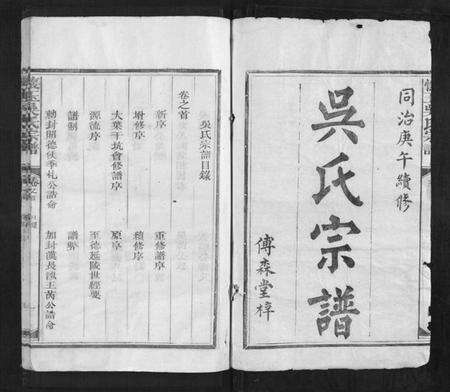 同治庚午續修
吳氏宗譜
傳森堂梓
吳氏宗譜目錄
卷之首
新序
重修譜序
增修序
續修序
大葉干坑會修譜序
原序
源流序
至德延陵世經
譜制
譜
勅封照德侯季札公誥命
加封漢長沙王芮公誥命
吳氏宗譜